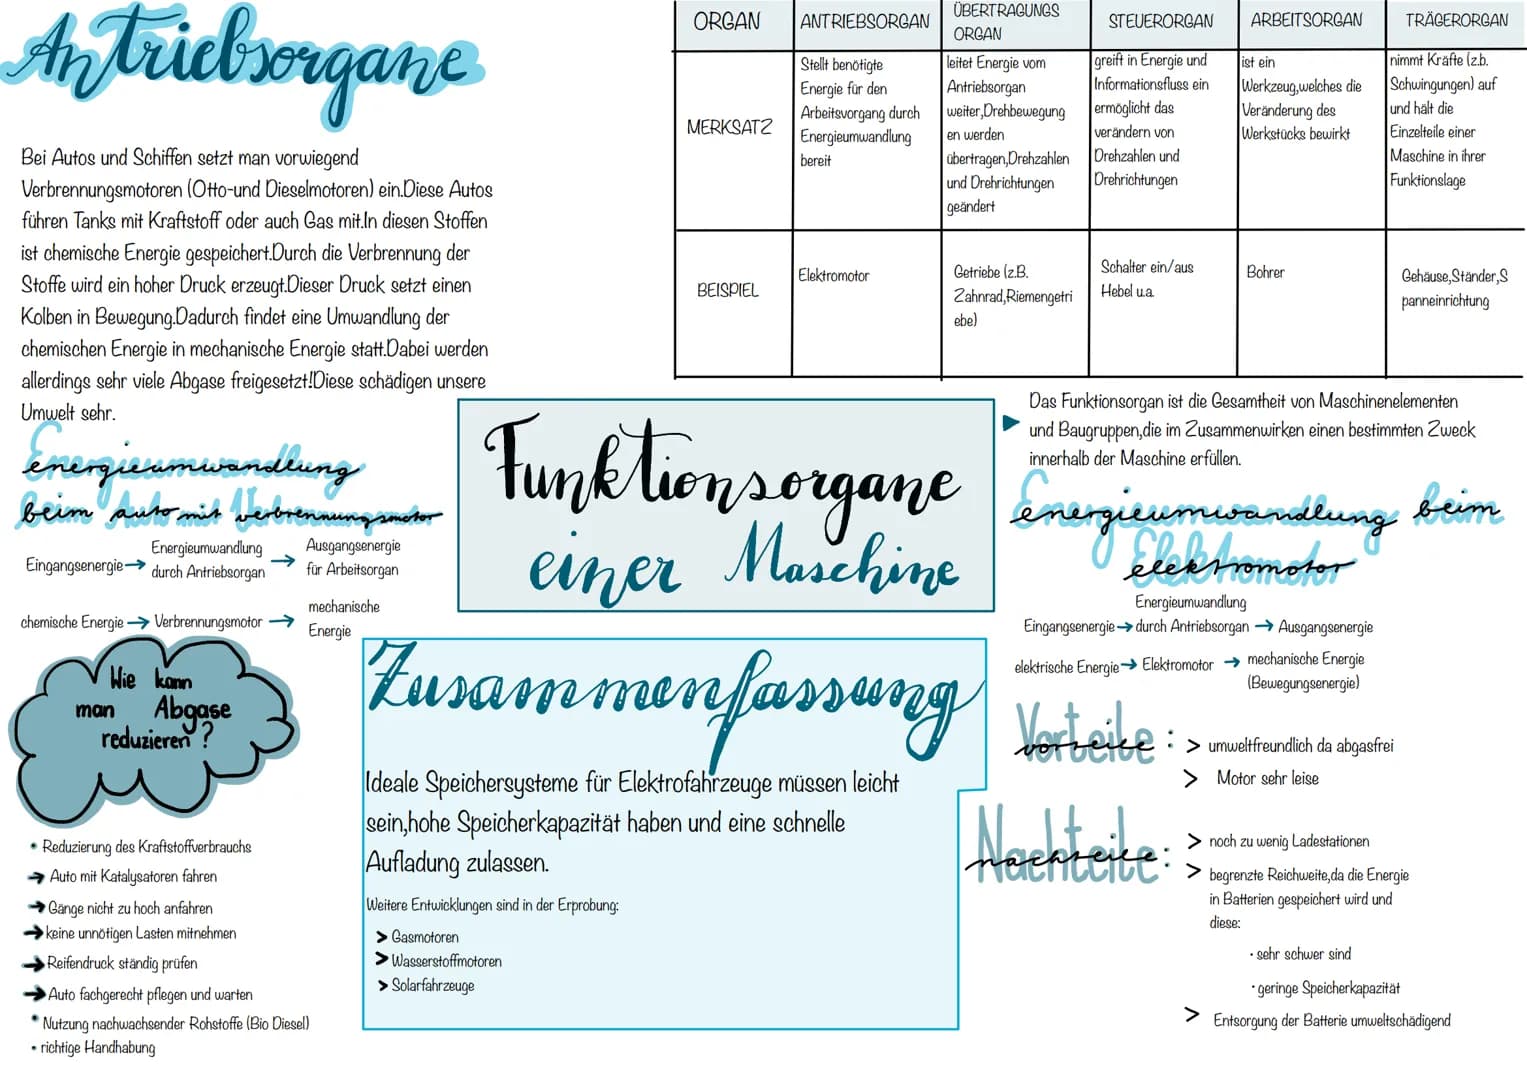 Antriebsorgane
Bei Autos und Schiffen setzt man vorwiegend
Verbrennungsmotoren (Otto-und Dieselmotoren) ein.Diese Autos
führen Tanks mit Kraftstoff oder auch Gas mit.In diesen Stoffen
ist chemische Energie gespeichert.Durch die Verbrennung der
Stoffe wird ein hoher Druck erzeugt.Dieser Druck setzt einen
Kolben in Bewegung.Dadurch findet eine Umwandlung der
chemischen Energie in mechanische Energie statt.Dabei werden
allerdings sehr viele Abgase freigesetzt!Diese schädigen unsere
Umwelt sehr.
ORGAN
ANTRIEBSORGAN
ÜBERTRAGUNGS
ORGAN
STEUERORGAN
ARBEITSORGAN
TRÄGERORGAN
MERKSATZ
Stellt benötigte
Energie für den
Arbeitsvorgang durch
Energieumwandlung
bereit
leitet Energie vom
Antriebsorgan
weiter,Drehbewegung
en werden
übertragen,Drehzahlen
und Drehrichtungen
geändert
greift in Energie und
Informationsfluss ein
ermöglicht das
verändern von
Drehzahlen und
Drehrichtungen
ist ein
Werkzeug,welches die
Veränderung des
Werkstücks bewirkt
nimmt Kräfte (z.b.
Schwingungen) auf
und hält die
Einzelteile einer
Maschine in ihrer
Funktionslage
BEISPIEL
Elektromotor
Getriebe (z.B.
Zahnrad,Riemengetri
ebe)
Schalter ein/aus
Hebel u.a.
Bohrer
Gehäuse,Ständer,S
panneinrichtung
Funktionsorgane
einer Maschine
Das Funktionsorgan ist die Gesamtheit von Maschinenelementen
und Baugruppen,die im Zusammenwirken einen bestimmten Zweck
innerhalb der Maschine erfüllen.
Energieumwandlung
beim auto mit verbrennungsmotor
Eingangsenergie → Energieumwandlung
durch Antriebsorgan → Ausgangsenergie
für Arbeitsorgan
chemische Energie → Verbrennungsmotor → mechanische
Energie
Wie kann
man Abgase
reduzieren ?
• Reduzierung des Kraftstoffverbrauchs
→ Auto mit Katalysatoren fahren
→ Gänge nicht zu hoch anfahren
→ keine unnötigen Lasten mitnehmen
→ Reifendruck ständig prüfen
→ Auto fachgerecht pflegen und warten
• Nutzung nachwachsender Rohstoffe (Bio Diesel)
• richtige Handhabung
Zusammenfassung
Ideale Speichersysteme für Elektrofahrzeuge müssen leicht
sein,hohe Speicherkapazität haben und eine schnelle
Aufladung zulassen.
Weitere Entwicklungen sind in der Erprobung:
> Gasmotoren
> Wasserstoffmotoren
> Solarfahrzeuge
Energieumwandlung beim
elektromotor
Energieumwandlung
Eingangsenergie → durch Antriebsorgan → Ausgangsenergie
elektrische Energie → Elektromotor → mechanische Energie
(Bewegungsenergie)
Vorteile :
> umweltfreundlich da abgasfrei
> Motor sehr leise
Nachteile :
> noch zu wenig Ladestationen
> begrenzte Reichweite,da die Energie
in Batterien gespeichert wird und
diese:
• sehr schwer sind
• geringe Speicherkapazität
> Entsorgung der Batterie umweltschädigend